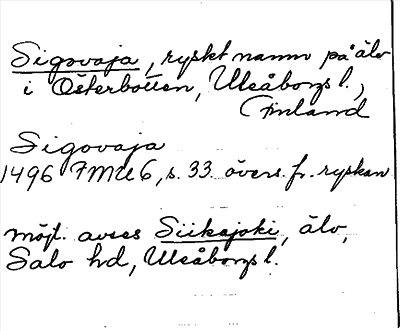 Sigovaja, ryskt namn på älv
i Österbotten, Uleåborgs l.,
Finland
Sigovaja
1496 FMU 6, s. 33. övers. fr. ryskan
möjl. avses Siikajoki, älv,
Salo hd, Uleåborgs l.